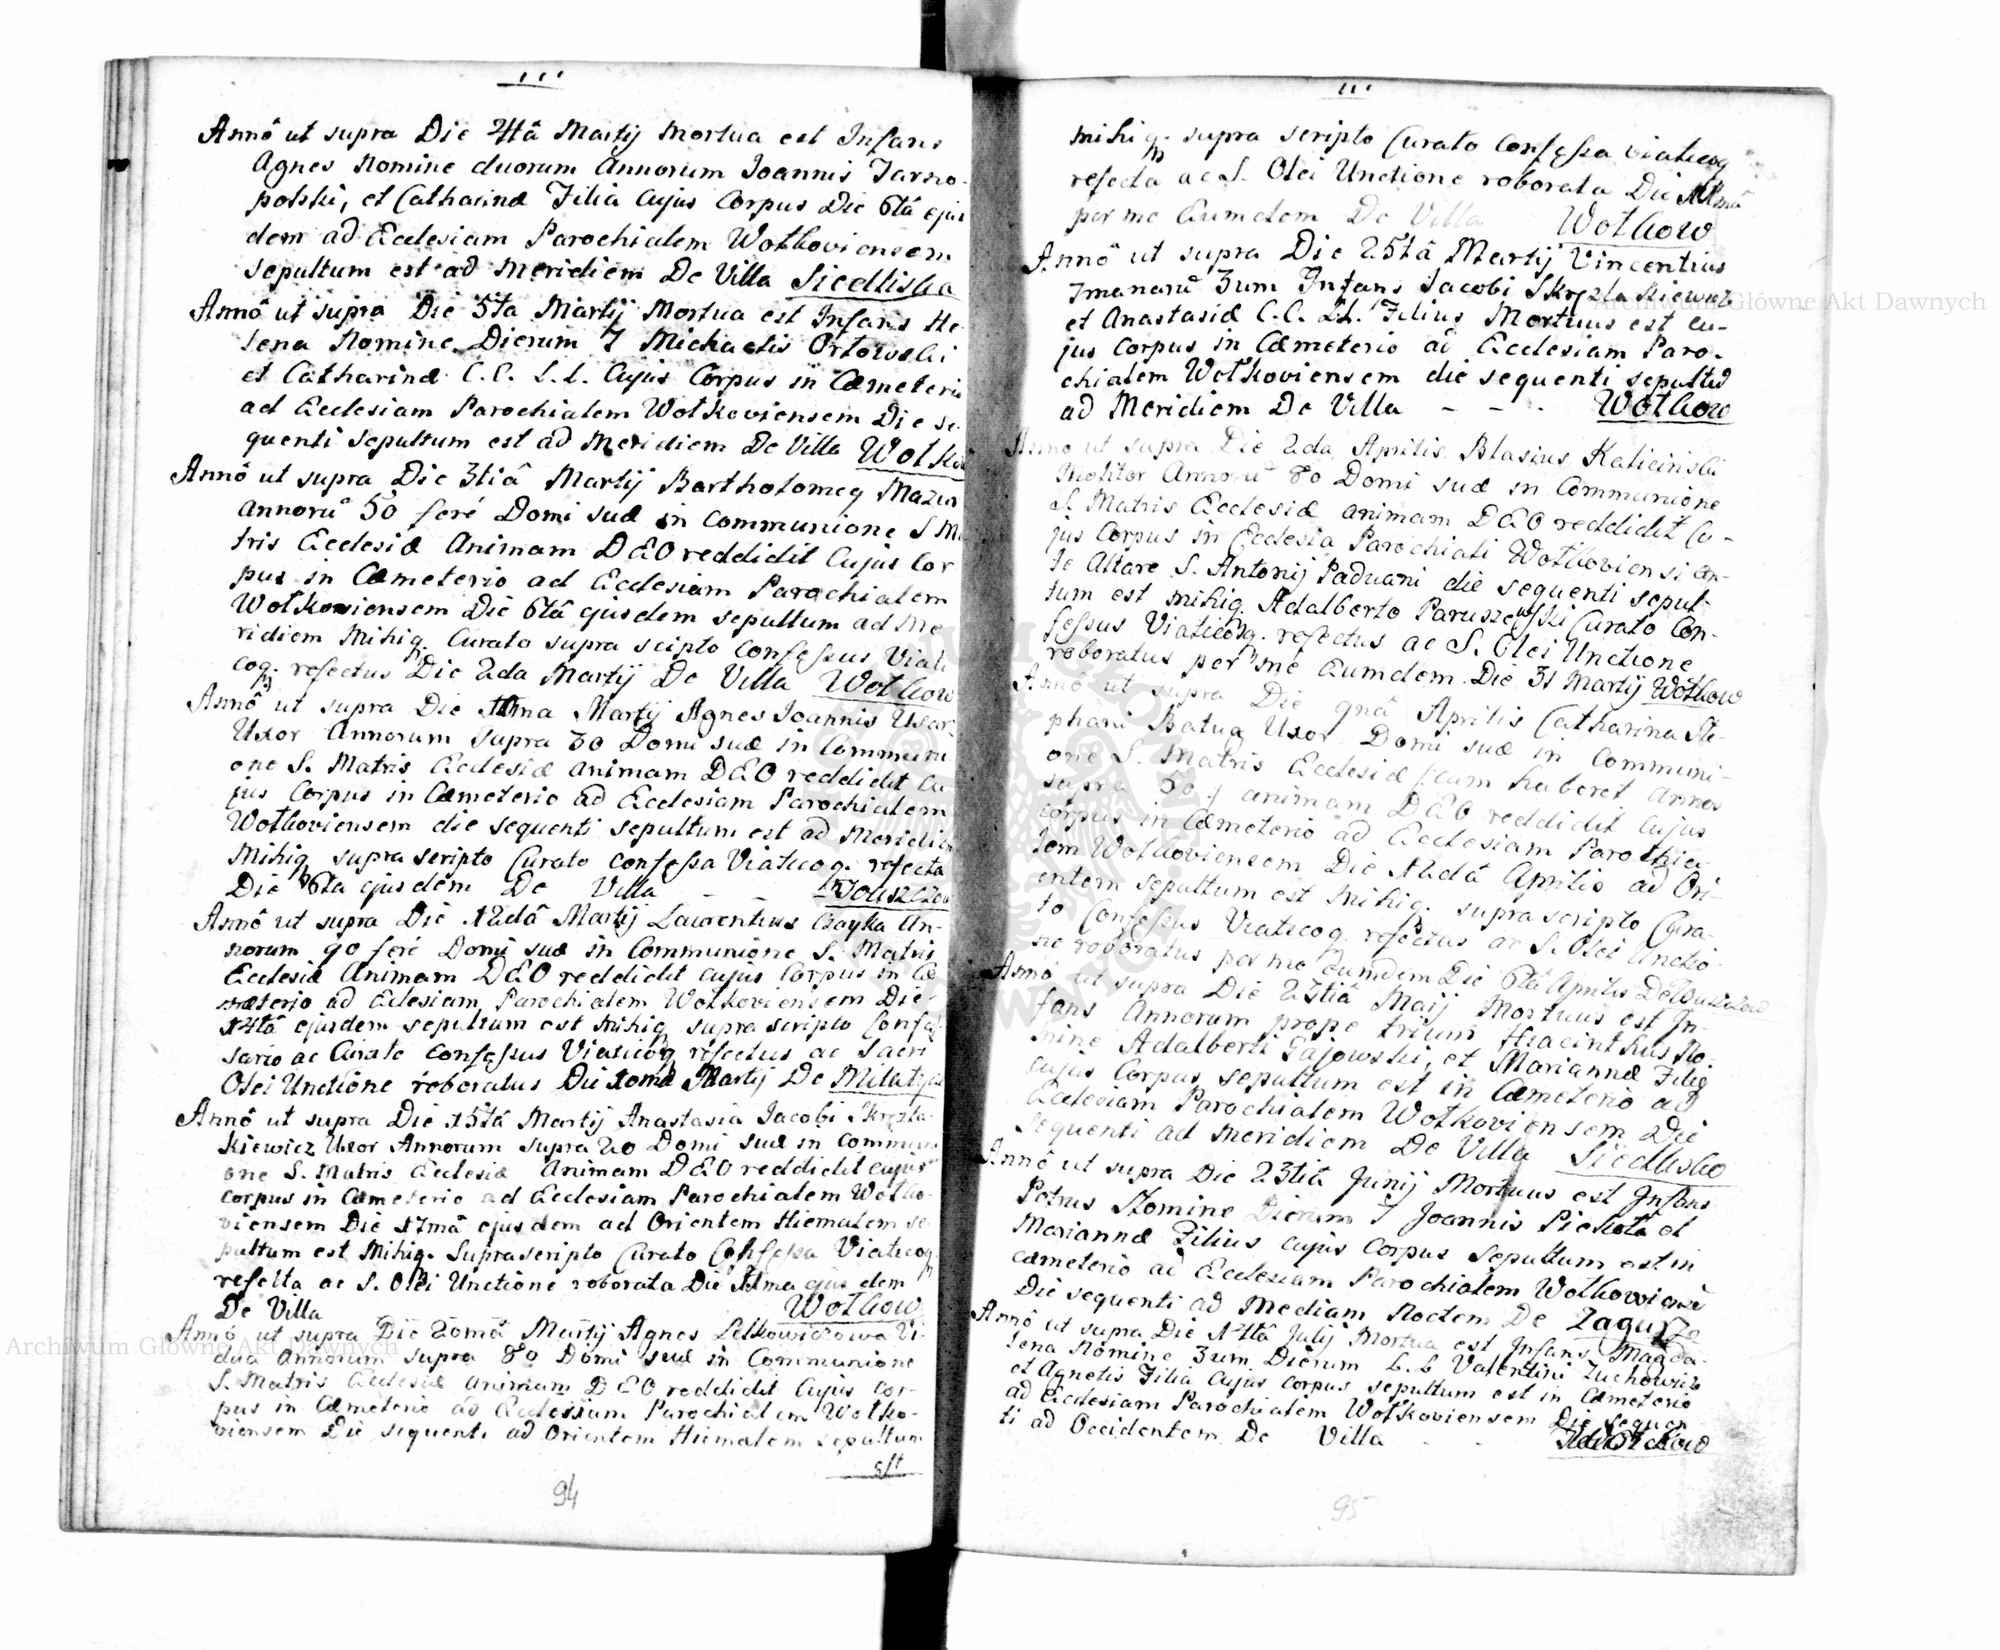 Annô ut supra Die 4tâ Martij Mortua est Infans
Agnes Nomine duorum Annorum Joannis Tarno-
polski, et Catharinæ Filia Cujus Corpus Die 6tâ ejus
dem ad Ecclesiam Parochialem Wołkoviensem
sepultum est ad Meridiem De Villa Siedliska
Annô ut supra Die 5ta Martij Mortua est Infans He-
lena Nomine Dierum 7 Michaelis Orłowski
et Catharinæ C.C. L.L. Cujus Corpus in Cæmeterio
ad Ecclesiam Parochialem Wołkoviensem Die se-
quenti sepultum est ad Meridiem De Villa Wołkow
Annô ut supra Die 3tiâ Martij Bartholomeq Mazur
annorũ 50 feré Domi suæ in communione S Ma
tris Ecclesiæ Animam DEO reddidit Cujus Cor
pus in Cæmeterio ad Ecclesiam Parochialem
Wołkoviensem Die 6tâ ejusdem sepultum ad Me
ridiem Mihiq. Curato supra scipto Confessus Viati
coq. refectus Die 2da Martij De Villa Wołkow
Annô ut supra Die Martij Agnes Joannis
Uxor Annorum supra 30 Domi suæ in Communi
one S. Matris Ecclesiæ animam DEO reddidit Cu
jus Corpus in Cæmeterio ad Ecclesiam Parochialem
Wołkoviensem die sequenti sepultum est ad Meridiem
Mihiq supra scripto Curato confessa Viaticoq. refecta
Die 6ta ejusdem De Villa – –
Annô ut supra Die 12dâ Martij Laurentius Czayka An-
norum 90 feré Domi suæ in Communione S. Matris
Ecclesiæ Animam DEO reddidit cujus Corpus in Cæ
mæterio ad Eclesiam Parochialem Wołkoviensem Die
14tâ ejusdem sepultum est Mihiq supra scripto Confes-
sario ac Curato confessus Viaticoq refectus ac Sacri
Olei Unctione roboratus Die 10mâ Martij De Milatycze
Annô ut supra Die 15tâ Martij Anastasia Jacobi Skrzyta-
kiewicz Uxor Annorum supra 20 Domi suæ in communi
one S. Matris Ecclesiæ Animam DEO reddidit cujus
corpus in Cæmeterio ad Ecclesiam Parochialem Wołko-
viensem Die 17mâ ejusdem ad Orientem Hiemalem se-
pultum est Mihiq. Suprascripto Curato Confessa Viaticoq.
refecta ac S. Olei Unctione roborata Die ejusdem
De Villa Wołkow
Annô ut supra Die 20mâ Martij Agnes Lelkowiczowa Vi-
dua Annorum supra 80 Domi suæ in Communione
S. Matris Ecclesiæ animam DEO reddidit Cujus Cor-
pus in Cæmeterio ad Ecclesiam Parochialem Wołko-
viensem Die sequenti ad Orientem Hiemalem sepultum
est
94
mihiq. supra scripto Curato Confessa viaticoq
refecta ac S. Olei Unctione roborata Die
per me Eumdem De Villa Wołkow
Annô ut supra Die 25tâ Martij Vincentius
7manarũ 3um Infans Jacobi
et Anastasiæ C.C. LL. Filius Mortuus est cu-
jus Corpus in Cæmeterio ad Ecclesiam Paro-
chialem Wołkoviensem die sequenti sepultũ
ad Meridiem De Villa – – . Wołkow
Anno ut supra Die 2da Aprilis Blasius Kaliciński
Molitor Annorũ 80 Domi suæ in Communione
S. Matris Ecclesiæ animam DEO reddidit Cu-
jus Corpus in Ecclesia Parochiali Wołkoviensi an-
te Altare S. Antonij Paduani die sequenti sepul-
tum est mihiq. Adalberto Paruszewski Curato Con-
fessus Viaticoq. refectus ac S. Olei Unctione
roboratus per me eumdem Die 31 Martij Wołkow
Annô ut supra Die Aprilis Catharina Ste-
phani Batug Uxor Domi suæ in Communi-
one S. Matris Ecclesiæ /:cum haberet Annos
supra 50:/ animam DEO reddidit Cujus
corpus in Cæmeterio ad Ecclesiam Parochia-
lem Wołkoviensem Die Aprilis ad Ori-
entem sepultum est Mihiq. supra scripto Cura-
to Confessus Viaticoq refectus ac S. Olei Unctio-
ne roboratus per me eumdem Die 6tâ Aprilis De
Annô ut supra Die 23tiâ Maij Mortuus est In-
fans Annorum prope trium Hiacinthus No-
mine Adalberti Gajowski, et Mariannæ Filiq
cujus Corpus sepultum est in Cæmeterio ad
Ecclesiam Parochialem Wołkoviensem Die
sequenti ad meridiem De Villa Siedlisko
Annô ut supra Die 23tiâ Junij Mortuus est Infans
Petrus Nomine Dierum 7 Joannis Piekota et
Mariannæ Filius cujus Corpus sepultum est in
cæmeterio ad Ecclesiam Parochialem Wołkoviensẽ
Die sequenti ad Mediam Noctem De Zagurze
Annô ut supra Die 14tâ Julij Mortua est Infans Magda-
lena Nomine 3um Dierum L.L Valentini Zuchowicz
et Agnetis Filia Cujus Corpus sepultum est in Cæmeterio
ad Ecclesiam Parochialem Wołkoviensem Die sequen-
ti ad Occidentem De Villa - -
95
Archiwum Główne Akt Dawnych
Archiwum Główne Akt Dawnych